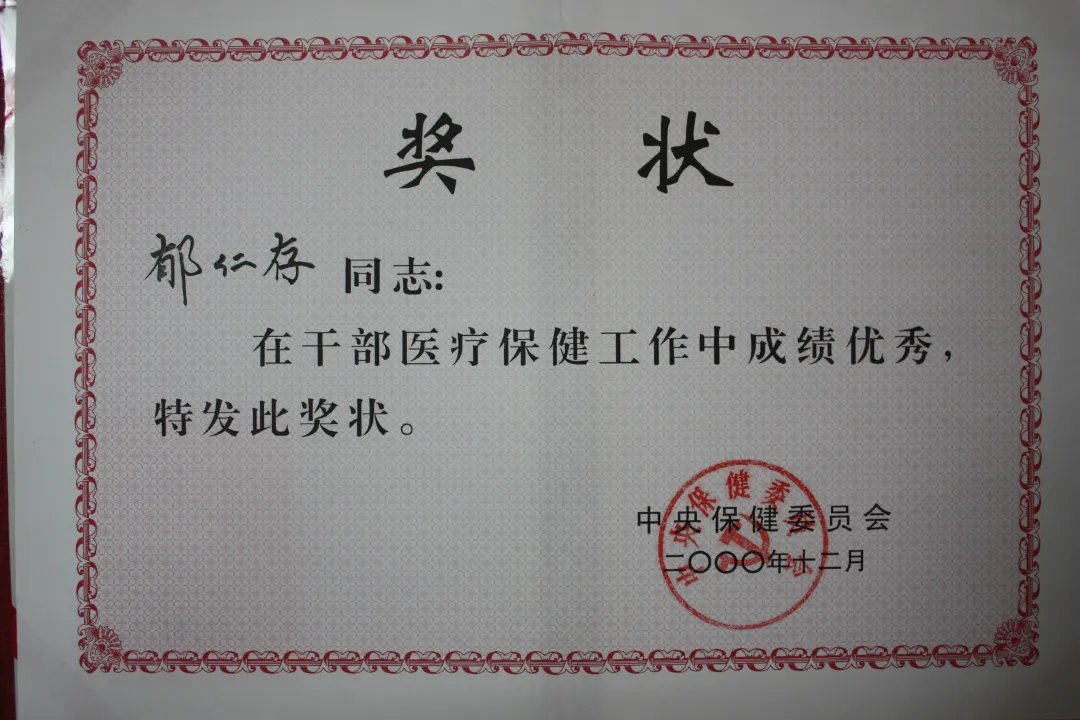 奖状
郁仁存 同志:
在干部医疗保健工作中成绩优秀，
特发此奖状。
中央保健委员会
二〇〇〇年十二月
中央保健委员会